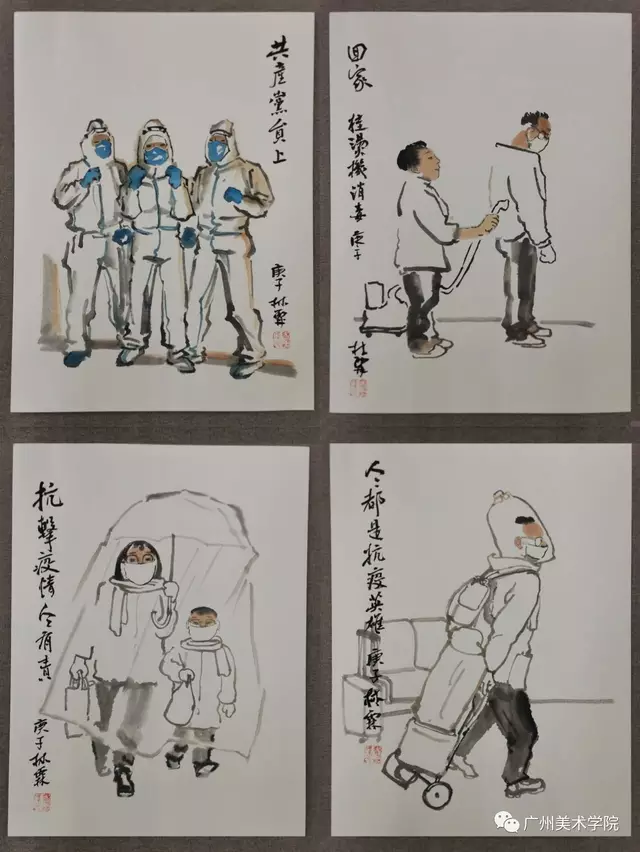 共産黨員上
庚子林霖
回家
挂燙機消毒 庚子
林霖
抗擊疫情人人有責
庚子林霖
人人都是抗疫英雄 庚子林霖
广州美术学院